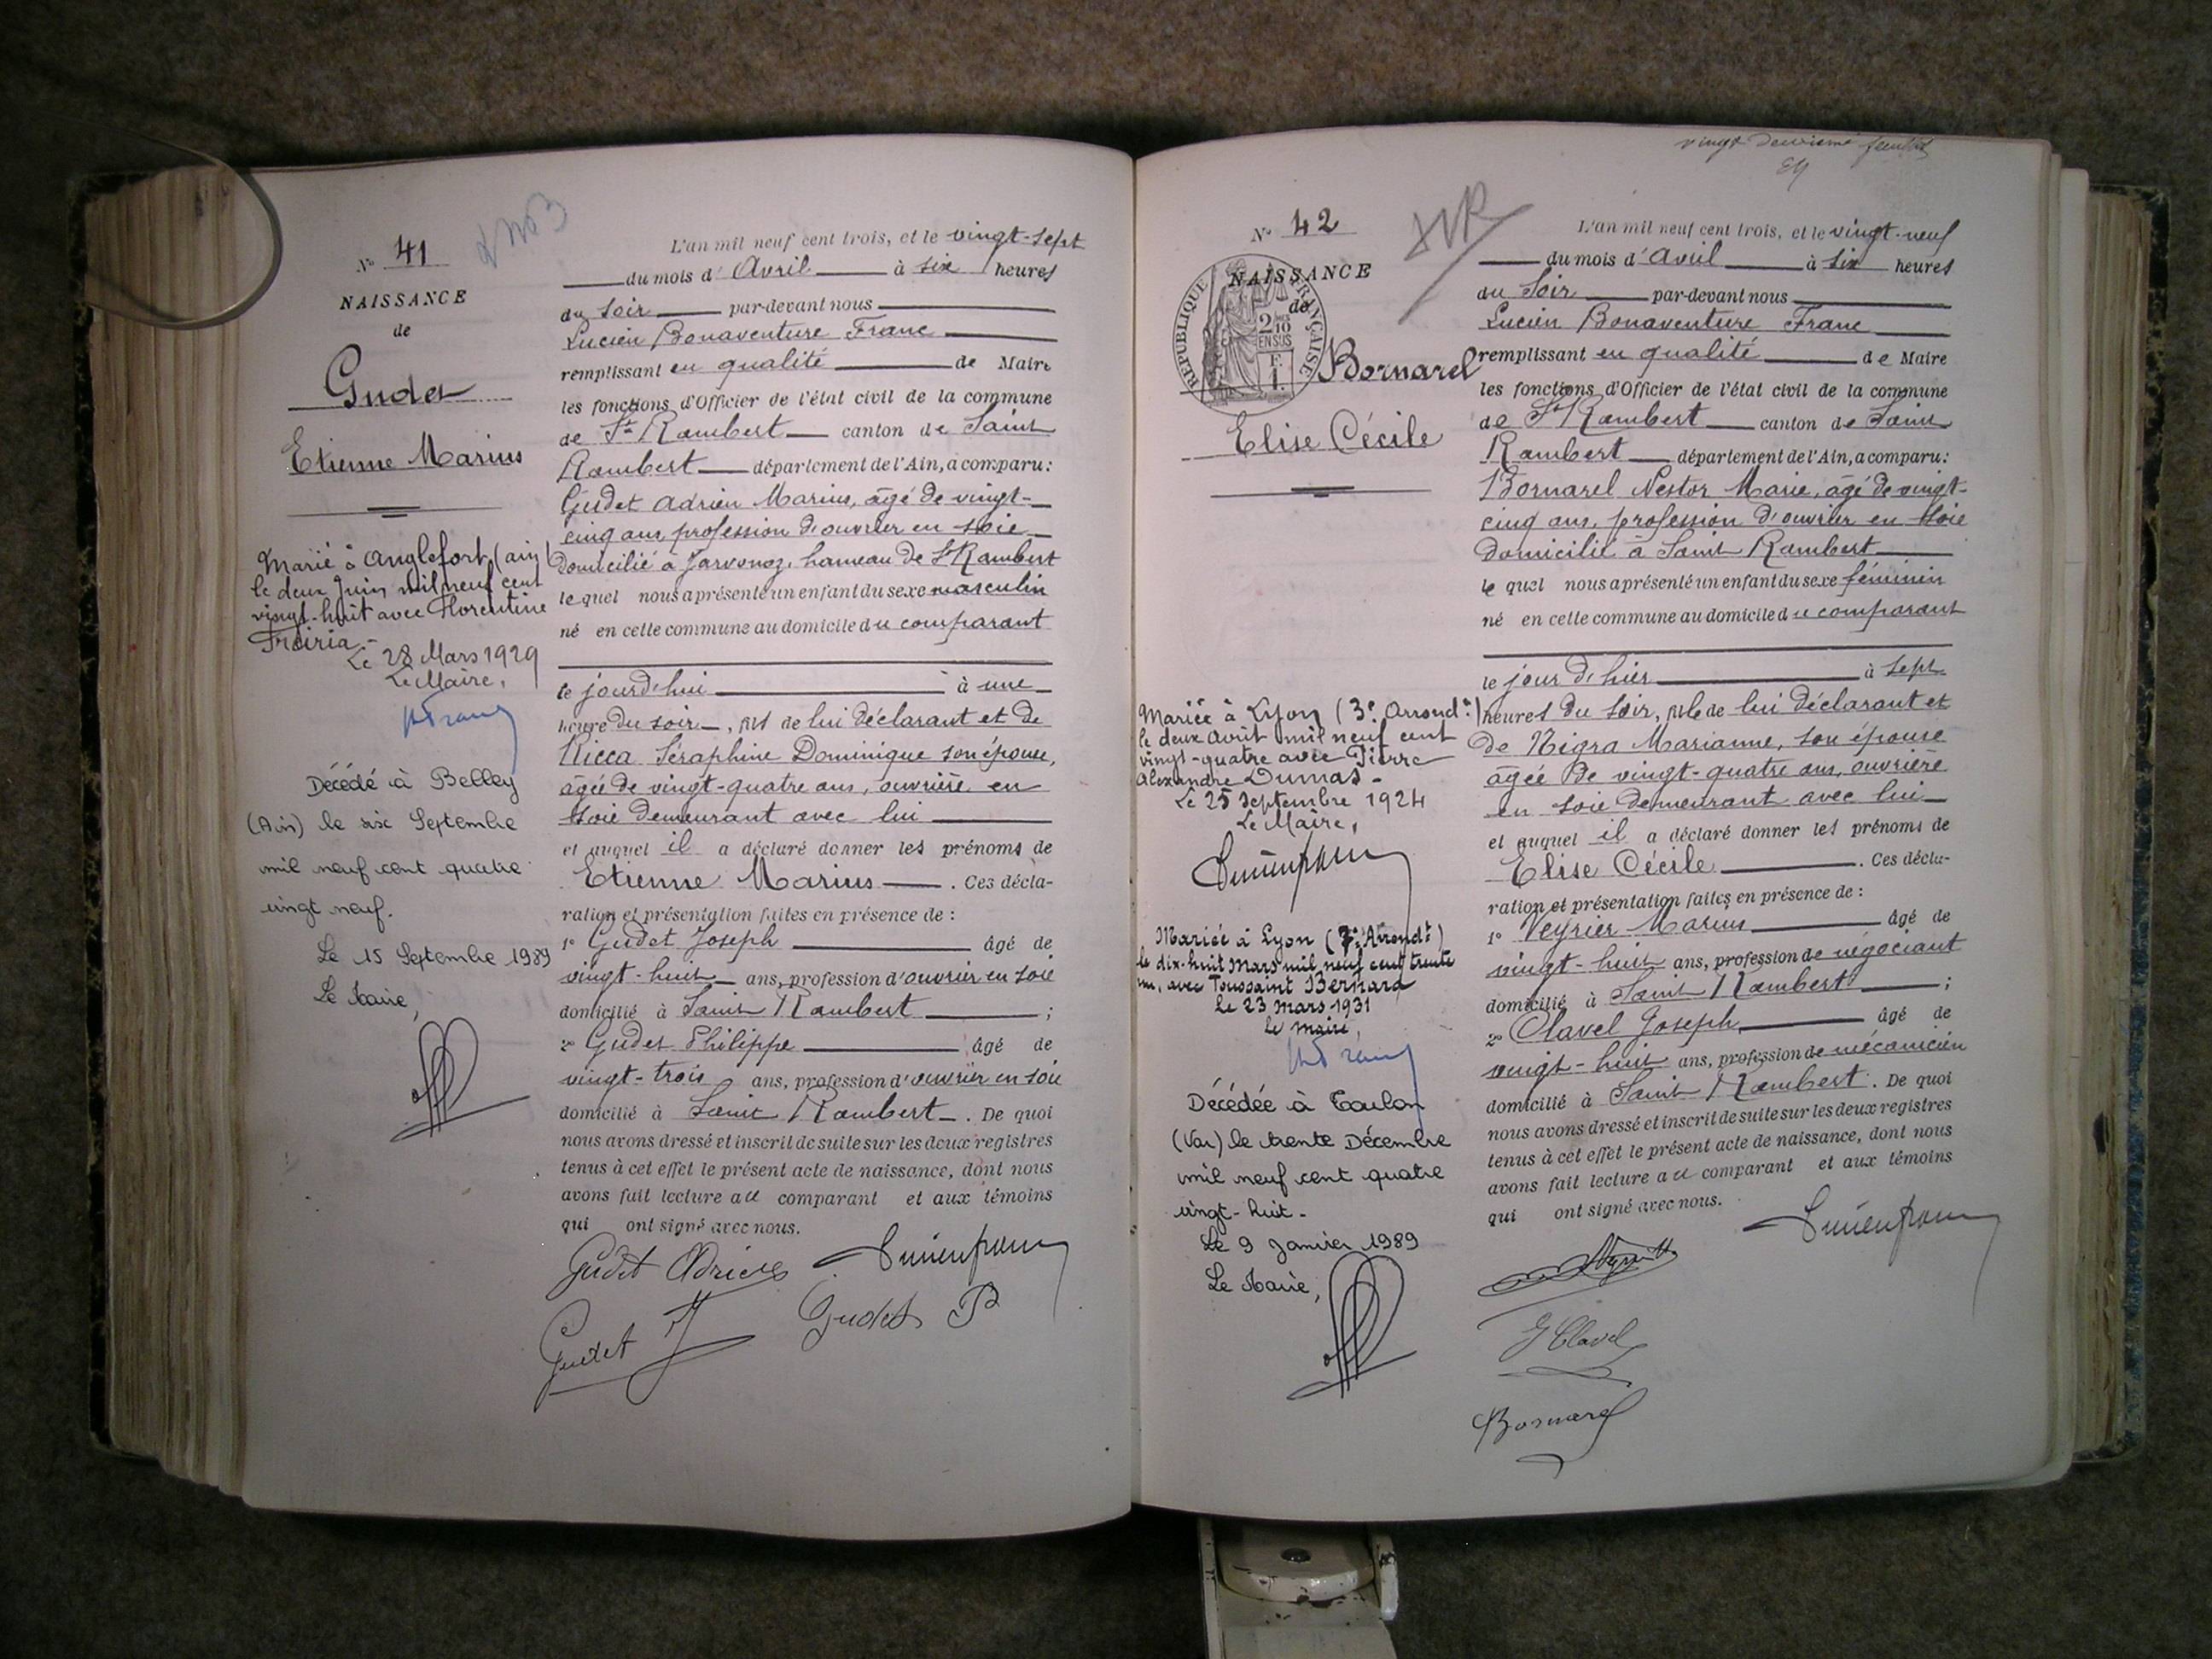 N° 41
NAISSANCE
de
Gudet
Etienne Marius
Marié à Anglefort (ain)
le deux Juin mil neuf cent
vingt-huit avec Florentine
Froiria-
Le 28 Mars 1929
Le Maire,
Décédé à Belley
(Ain) le six Septembre
mil neuf cent quatre
vingt neuf.
Le 15 Septembre 1989
Le Maire,
L'an mil neuf cent trois, et le vingt-sept
du mois d'Avril à six heures
du soir par-devant nous
Lucien Bonaventure Franc
remplissant en qualité de Maire
les fonctions d'Officier de l'état civil de la commune
de St Rambert canton de Saint
Rambert département de l'Ain, a comparu:
Gudet Adrien Marius, âgé de vingt-
cinq ans, profession d'ouvrier en soie
domicilié à Javornoz, hameau de St Rambert
le quel nous a présenté un enfant du sexe masculin
né en cette commune au domicile du comparant
le jourd'hui à une
heure du soir, fils de lui déclarant et de
Ricca Séraphine Dominique son épouse,
âgée de vingt-quatre ans, ouvrière en
soie demeurant avec lui
et auquel il a déclaré donner les prénoms de
Etienne Marius. Ces décla-
ration et présentation faites en présence de :
1° Gudet Joseph âgé de
vingt-huit ans, profession d'ouvrier en soie
domicilié à Saint Rambert ;
2° Gudet Philippe âgé de
vingt-trois ans, profession d'ouvrier en soie
domicilié à Saint Rambert. De quoi
nous avons dressé et inscrit de suite sur les deux registres
tenus à cet effet le présent acte de naissance, dont nous
avons fait lecture au comparant et aux témoins
qui ont signé avec nous.
Gudet Adrien Lucien franc
Gudet J Gudet P
vingt deuxième feuillet
N° 42
NAISSANCE
de
REPUBLIQUE FRANÇAISE
2/10 EN SUS
Bornarel
Elise Cécile
Mariée à Lyon (3e Arrondt)
le deux Août mil neuf cent
vingt-quatre avec Pierre
Alexandre Dumas-
Le 25 Septembre 1924
Le Maire,
Lucien franc
Mariée à Lyon (7e Arrondt)
le dix-huit Mars mil neuf cent trente
un, avec Toussaint Bernard
Le 23 Mars 1931
Le maire,
Décédée à Toulon
(Var) le trente Décembre
mil neuf cent quatre
vingt-huit-
Le 9 Janvier 1989
Le Maire,
L'an mil neuf cent trois, et le vingt-neuf
du mois d'Avril à six heures
du soir par-devant nous
Lucien Bonaventure Franc
remplissant en qualité de Maire
les fonctions d'Officier de l'état civil de la commune
de St Rambert canton de Saint
Rambert département de l'Ain, a comparu:
Bornarel Nestor Marie, âgé de vingt-
cinq ans, profession d'ouvrier en soie
domicilié à Saint Rambert
le quel nous a présenté un enfant du sexe féminin
né en cette commune au domicile du comparant
le jour d'hier à sept
heures du soir, fille de lui déclarant et
de Nigra Marianne, son épouse
âgée de vingt-quatre ans, ouvrière
en soie demeurant avec lui
et auquel il a déclaré donner les prénoms de
Elise Cécile. Ces décla-
ration et présentation faites en présence de :
1° Veyrier Marius âgé de
vingt-huit ans, profession de négociant
domicilié à Saint Rambert ;
2° Clavel Joseph, âgé de
vingt-huit ans, profession de mécanicien
domicilié à Saint Rambert. De quoi
nous avons dressé et inscrit de suite sur les deux registres
tenus à cet effet le présent acte de naissance, dont nous
avons fait lecture au comparant et aux témoins
qui ont signé avec nous.
Lucien franc
J Clavel
Bornarel